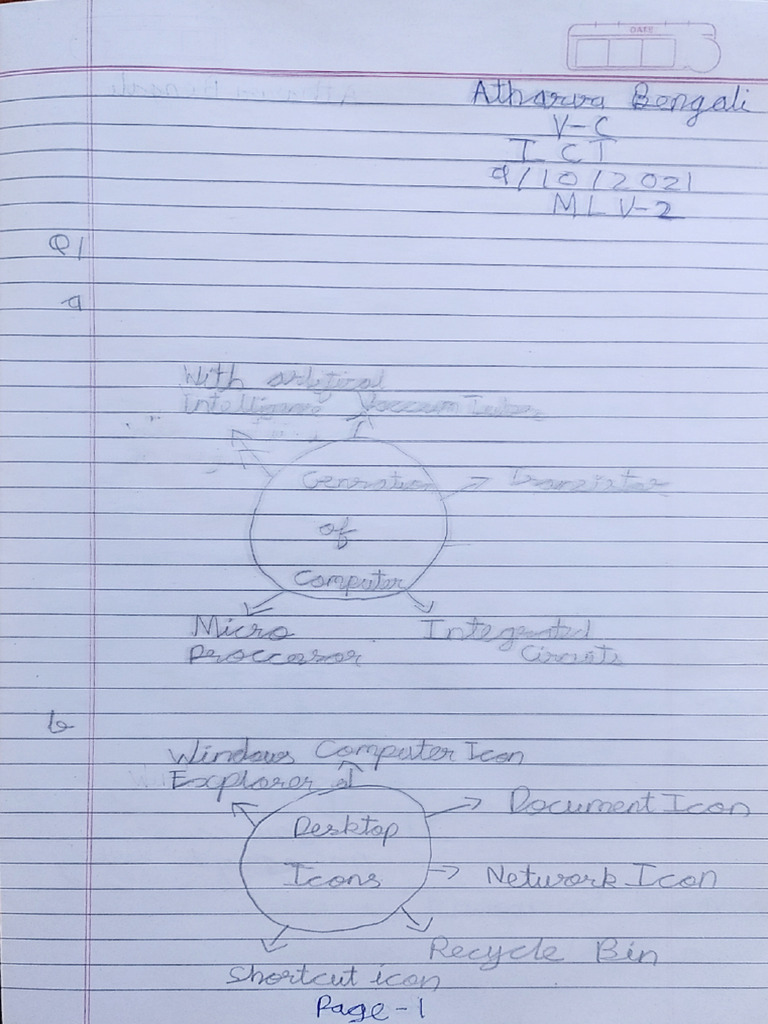 DATE
Atharva Bengali
V-C
ICT
9/10/2021
MLV-2
Q1
a
With
Generation
of
Computer
Transistor
Integrated
Circuits
Micro
Proccessor
b
Windows
Explorer
Computer Icon
Document Icon
Desktop
Icons
Network Icon
Recycle Bin
Shortcut icon
Page-1